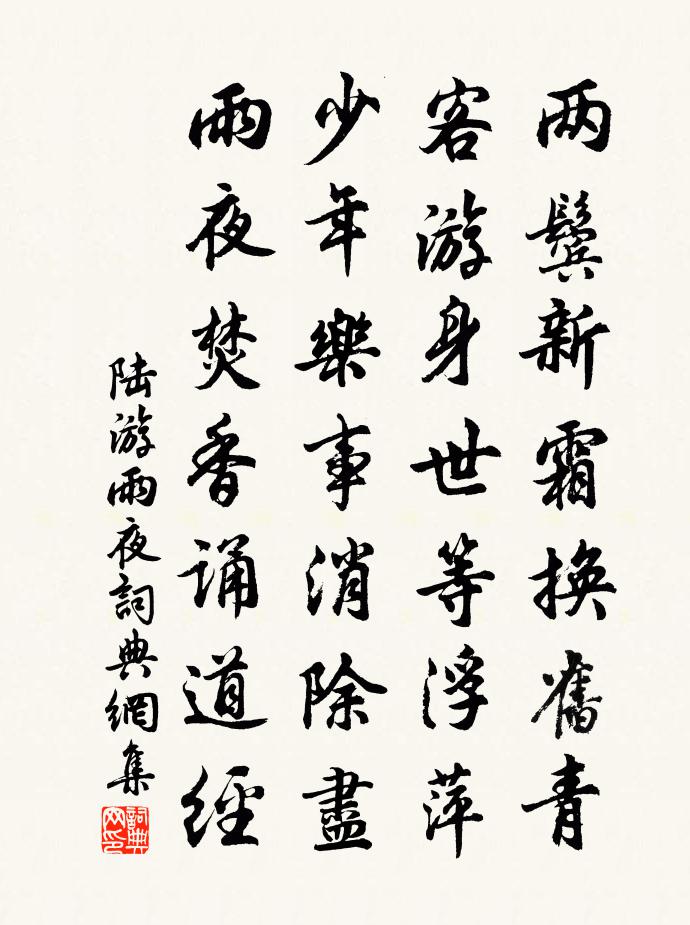 两鬓新霜换舊青
客游身世等浮萍
少年樂事消除盡
雨夜焚香诵道經
陆游雨夜詞典網集
詞典网印